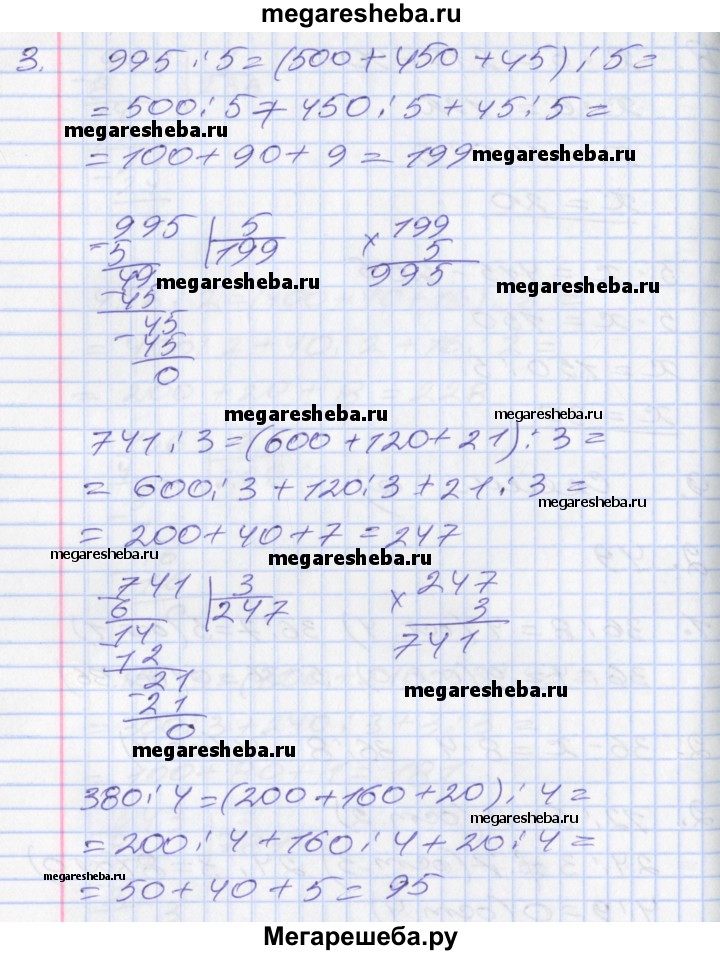 megaresheba.ru
3. 995 : 5 = (500 + 450 + 45) : 5 =
= 500 : 5 + 450 : 5 + 45 : 5 =
megaresheba.ru
= 100 + 90 + 9 = 199 megaresheba.ru
995 5 199
- 5 199 × 5
49 megaresheba.ru 995 megaresheba.ru
- 45
45
- 45
0
megaresheba.ru megaresheba.ru
741 : 3 = (600 + 120 + 21) : 3 =
= 600 : 3 + 120 : 3 + 21 : 3 =
megaresheba.ru
= 200 + 40 + 7 = 247
megaresheba.ru megaresheba.ru
- 741 3 247
6 247 × 3
- 14 741
12
21 megaresheba.ru
- 21
0
megaresheba.ru
380 : 4 = (200 + 160 + 20) : 4 =
megaresheba.ru
= 200 : 4 + 160 : 4 + 20 : 4 =
megaresheba.ru
= 50 + 40 + 5 = 95
Мегарешеба.ру